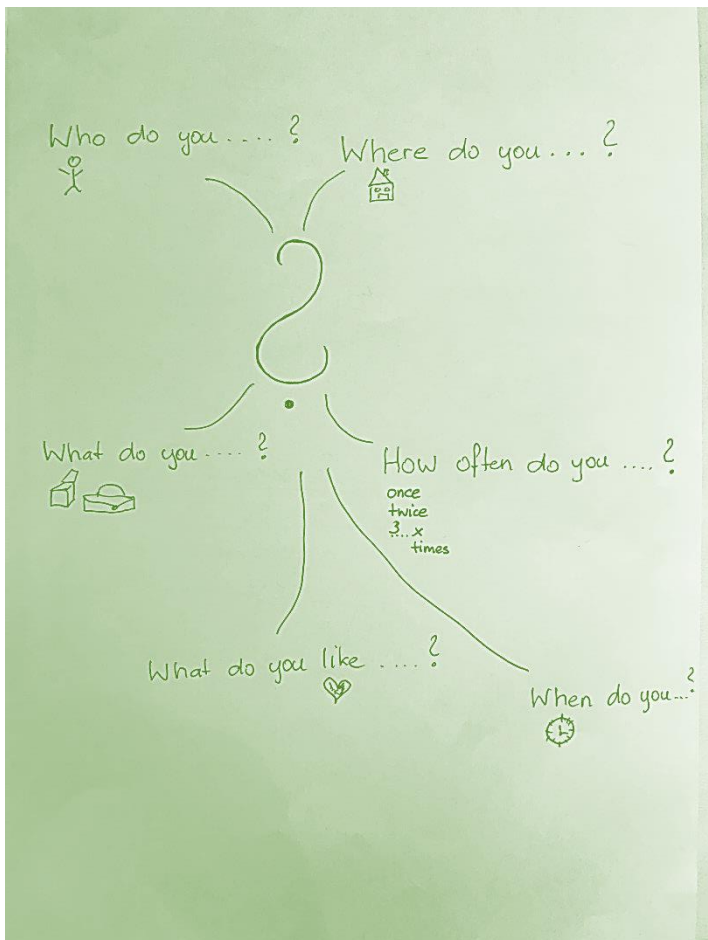 Who do you .... ?
Where do you ... ?
What do you .... ?
How often do you .... ?
once
twice
3...x
times
What do you like .... ?
When do you ...?